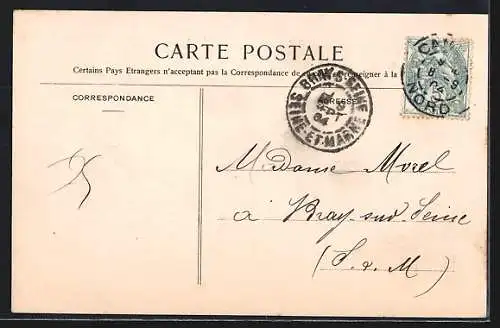 CARTE POSTALE
Certains Pays Etrangers n'acceptant pas la Correspondance de
seigner à la
CORRESPONDANCE
ADRESSE
BRAY S SEINE
SEINE-ET-MARNE
NORD
Madame Morel
à Bray-sur-Seine
(S. & M)